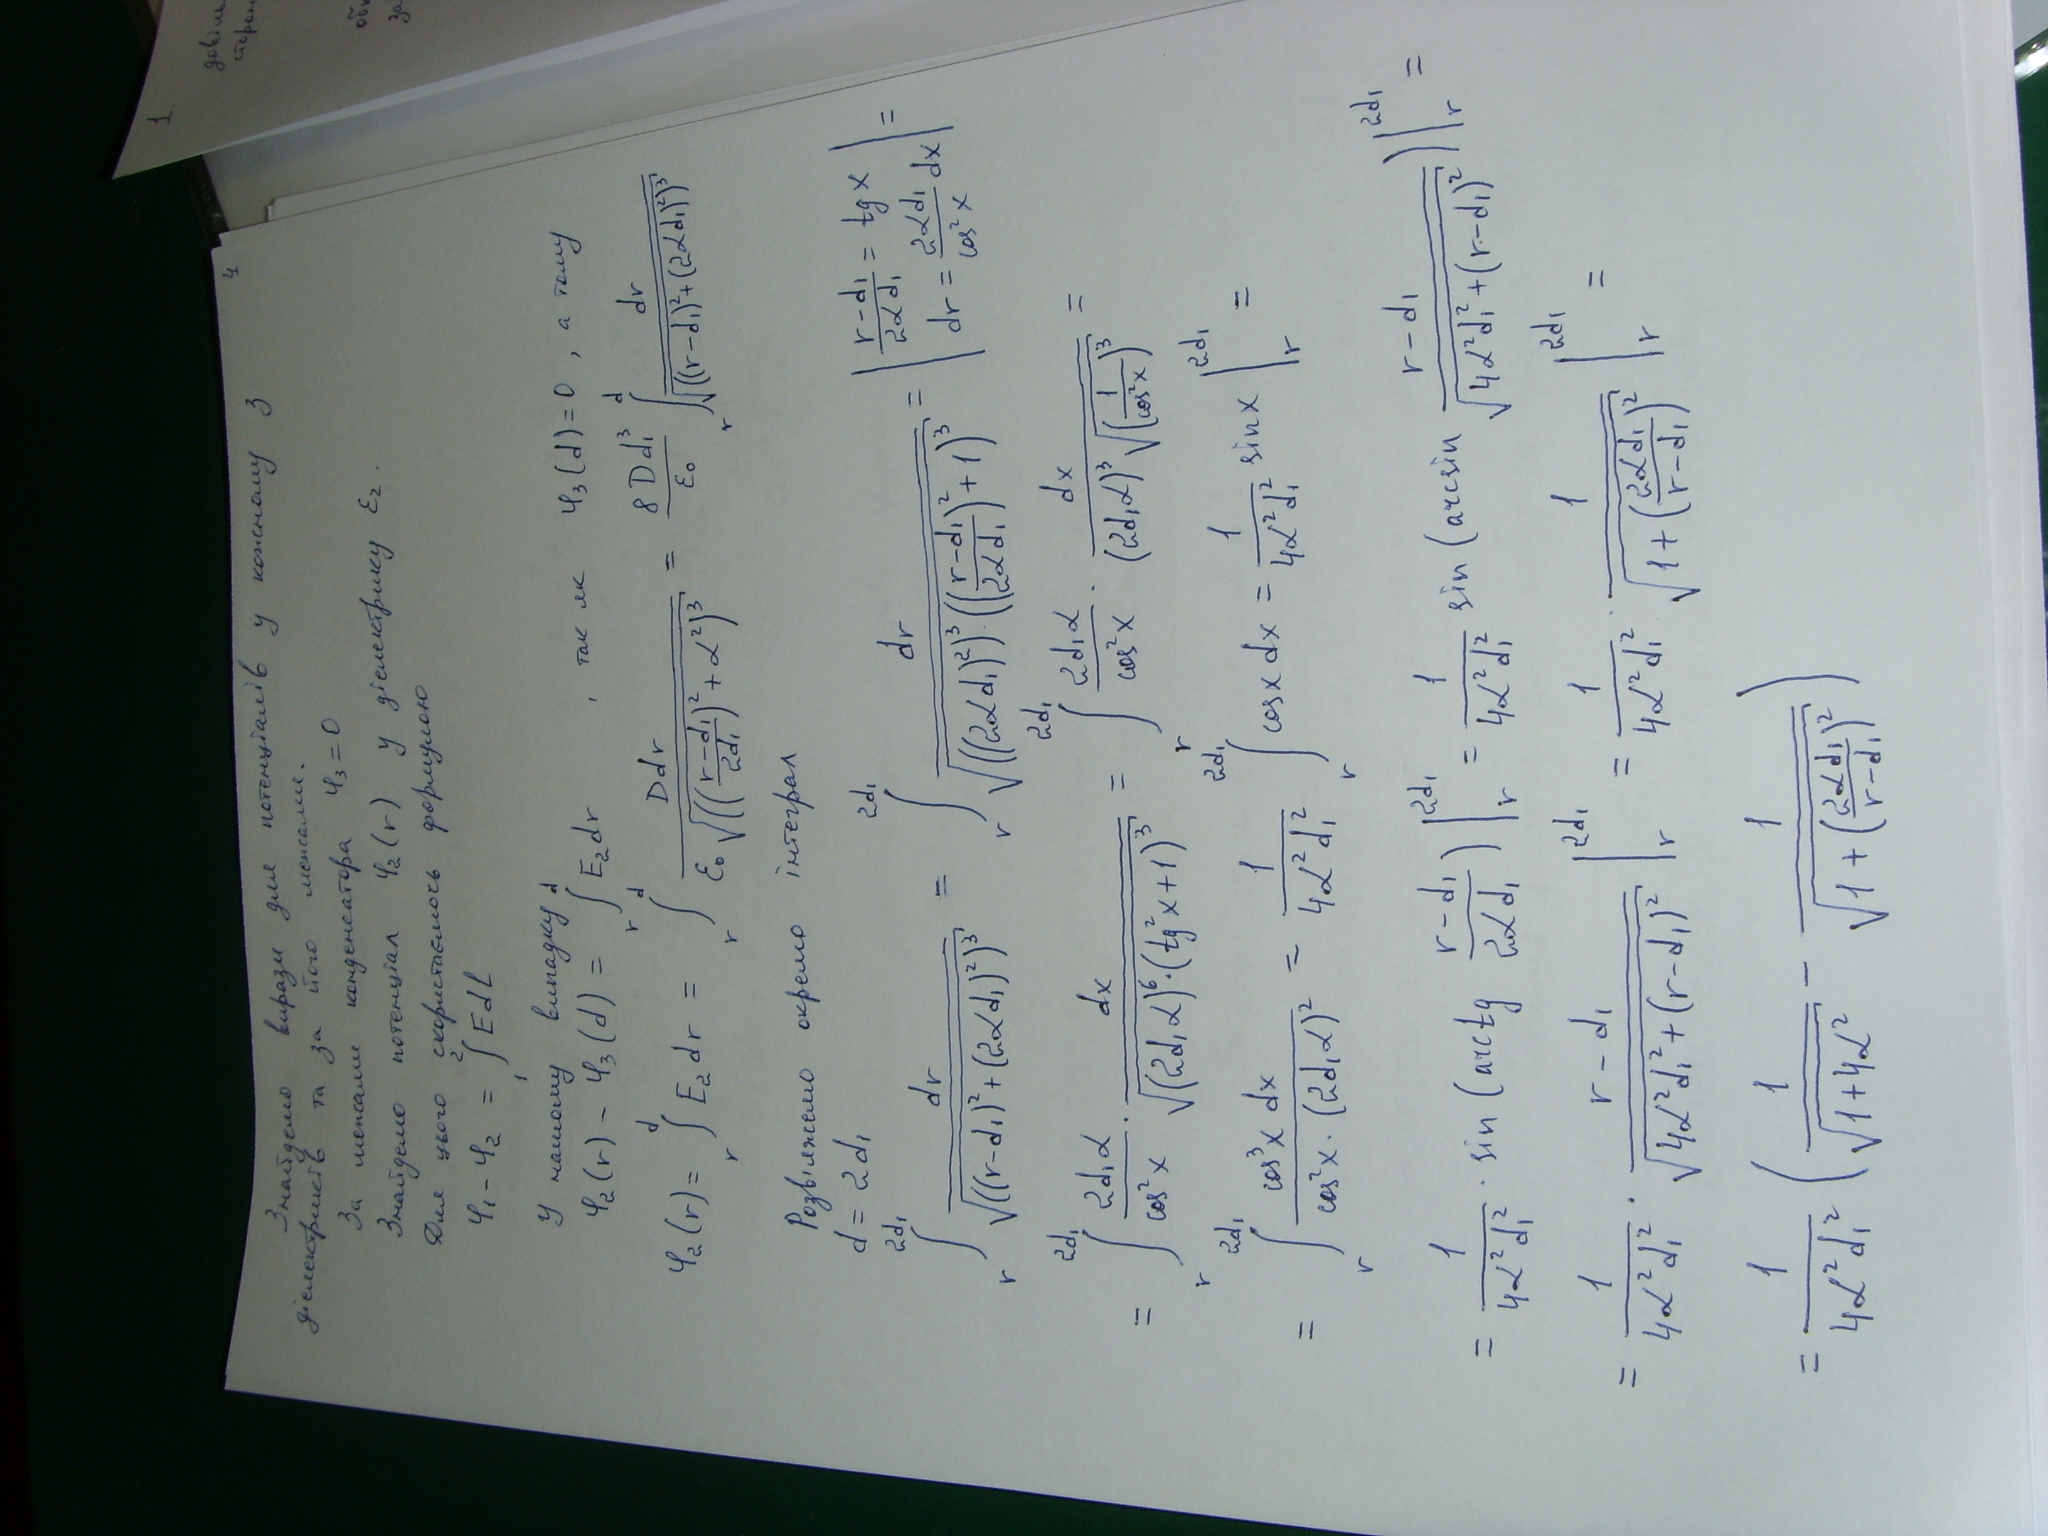 4
Знайдемо вирази для потенціалів у кожному з
діелектриків та за його межами.
За межами конденсатора φ₃ = 0
Знайдемо потенціал φ₂(r) у діелектрику ε₂.
Для цього скористаємось формулою
φ₁ - φ₂ = ∫₁² Edl
У нашому випадку
φ₂(r) - φ₃(d) = ∫ᵣᵈ E₂dr , так як φ₃(d) = 0, а тому
φ₂(r) = ∫ᵣᵈ E₂dr = ∫ᵣᵈ Ddr/(ε₀√((((r-d₁)/(2d₁))² + α²)³)) = 8Dd₁³/ε₀ ∫ᵣᵈ dr/√(((r-d₁)² + (2αd₁)²)³)
Розв'яжемо окремо інтеграл
d = 2d₁
∫ᵣ^(2d₁) dr/√(((r-d₁)² + (2αd₁)²)³) = ∫ᵣ^(2d₁) dr/√(((2αd₁)²)³·(((r-d₁)/(2αd₁))² + 1)³) = | (r-d₁)/(2αd₁) = tg x; dr = 2αd₁/cos²x dx | =
= ∫ᵣ^(2d₁) 2d₁α/cos²x · dx/√((2d₁α)⁶·(tg²x + 1)³) = ∫ᵣ^(2d₁) 2d₁α/cos²x · dx/((2d₁α)³√((1/cos²x)³)) =
= ∫ᵣ^(2d₁) cos³x dx/(cos²x·(2d₁α)²) = 1/(4α²d₁²) ∫ᵣ^(2d₁) cos x dx = 1/(4α²d₁²) sin x |ᵣ^(2d₁) =
= 1/(4α²d₁²) · sin(arctg (r-d₁)/(2αd₁)) |ᵣ^(2d₁) = 1/(4α²d₁²) sin(arcsin (r-d₁)/√(4α²d₁² + (r-d₁)²)) |ᵣ^(2d₁) =
= 1/(4α²d₁²) · (r-d₁)/√(4α²d₁² + (r-d₁)²) |ᵣ^(2d₁) = 1/(4α²d₁²) · 1/√(1 + ((2αd₁)/(r-d₁))²) |ᵣ^(2d₁) =
= 1/(4α²d₁²) (1/√(1+4α²) - 1/√(1 + ((2αd₁)/(r-d₁))²))
1.